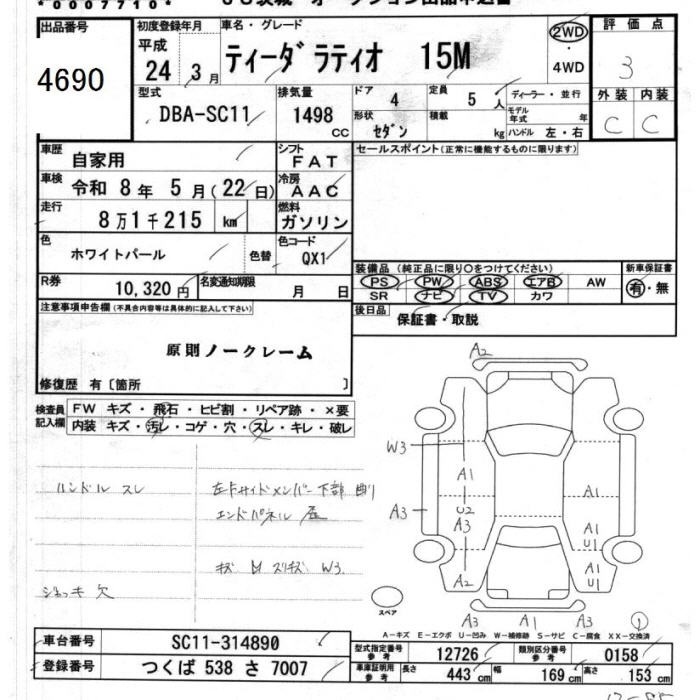 *0007710*
出品番号
4690
初度登録年月
平成
24年 3月
車名・グレード
ティーダ ラティオ 15M
2WD
・
4WD
評価点
3
型式
DBA-SC11
排気量
1498
CC
ドア
4
定員
5
人
ディーラー・並行
形状
セダン
積載
kg
モデル
年式
年
ハンドル 左・右
外装 内装
C C
車歴
自家用
シフト
FAT
セールスポイント(正常に機能するものに限ります)
車検
令和 8年 5月(22日)
冷房
AAC
走行
8万1千215 km
燃料
ガソリン
色
ホワイトパール
色替
色コード
QX1
R券
10,320円
名変通知期限
月 日
装備品(純正品に限り○をつけてください)
PS PW ABS エアB AW
SR ナビ TV カワ
新車保証書
有・無
後日品
保証書・取説
注意事項申告欄(不具合内容等は具体的に記入して下さい)
原則ノークレーム
修復歴 有〔箇所 〕
検査員
記入欄
FW キズ・飛石・ヒビ割・リペア跡・×要
内装 キズ・汚レ・コゲ・穴・スレ・キレ・破レ
ハンドル スレ
左右サイドメンバー下部
エンドパネル
キズ W3
欠
A2
W3
A1
A3
U2
A3
A2
A1
A1
U1
A1
U1
A3 A1 A3
1
スペア
A-キズ E-エクボ U-凹み W-補修跡 S-サビ C-腐食 XX-交換済
車台番号
SC11-314890
登録番号
つくば 538 さ 7007
型式指定番号
参考
12726
類別区分番号
参考
0158
車庫証明用
参考
長さ
443 cm
幅
169 cm
高さ
153 cm